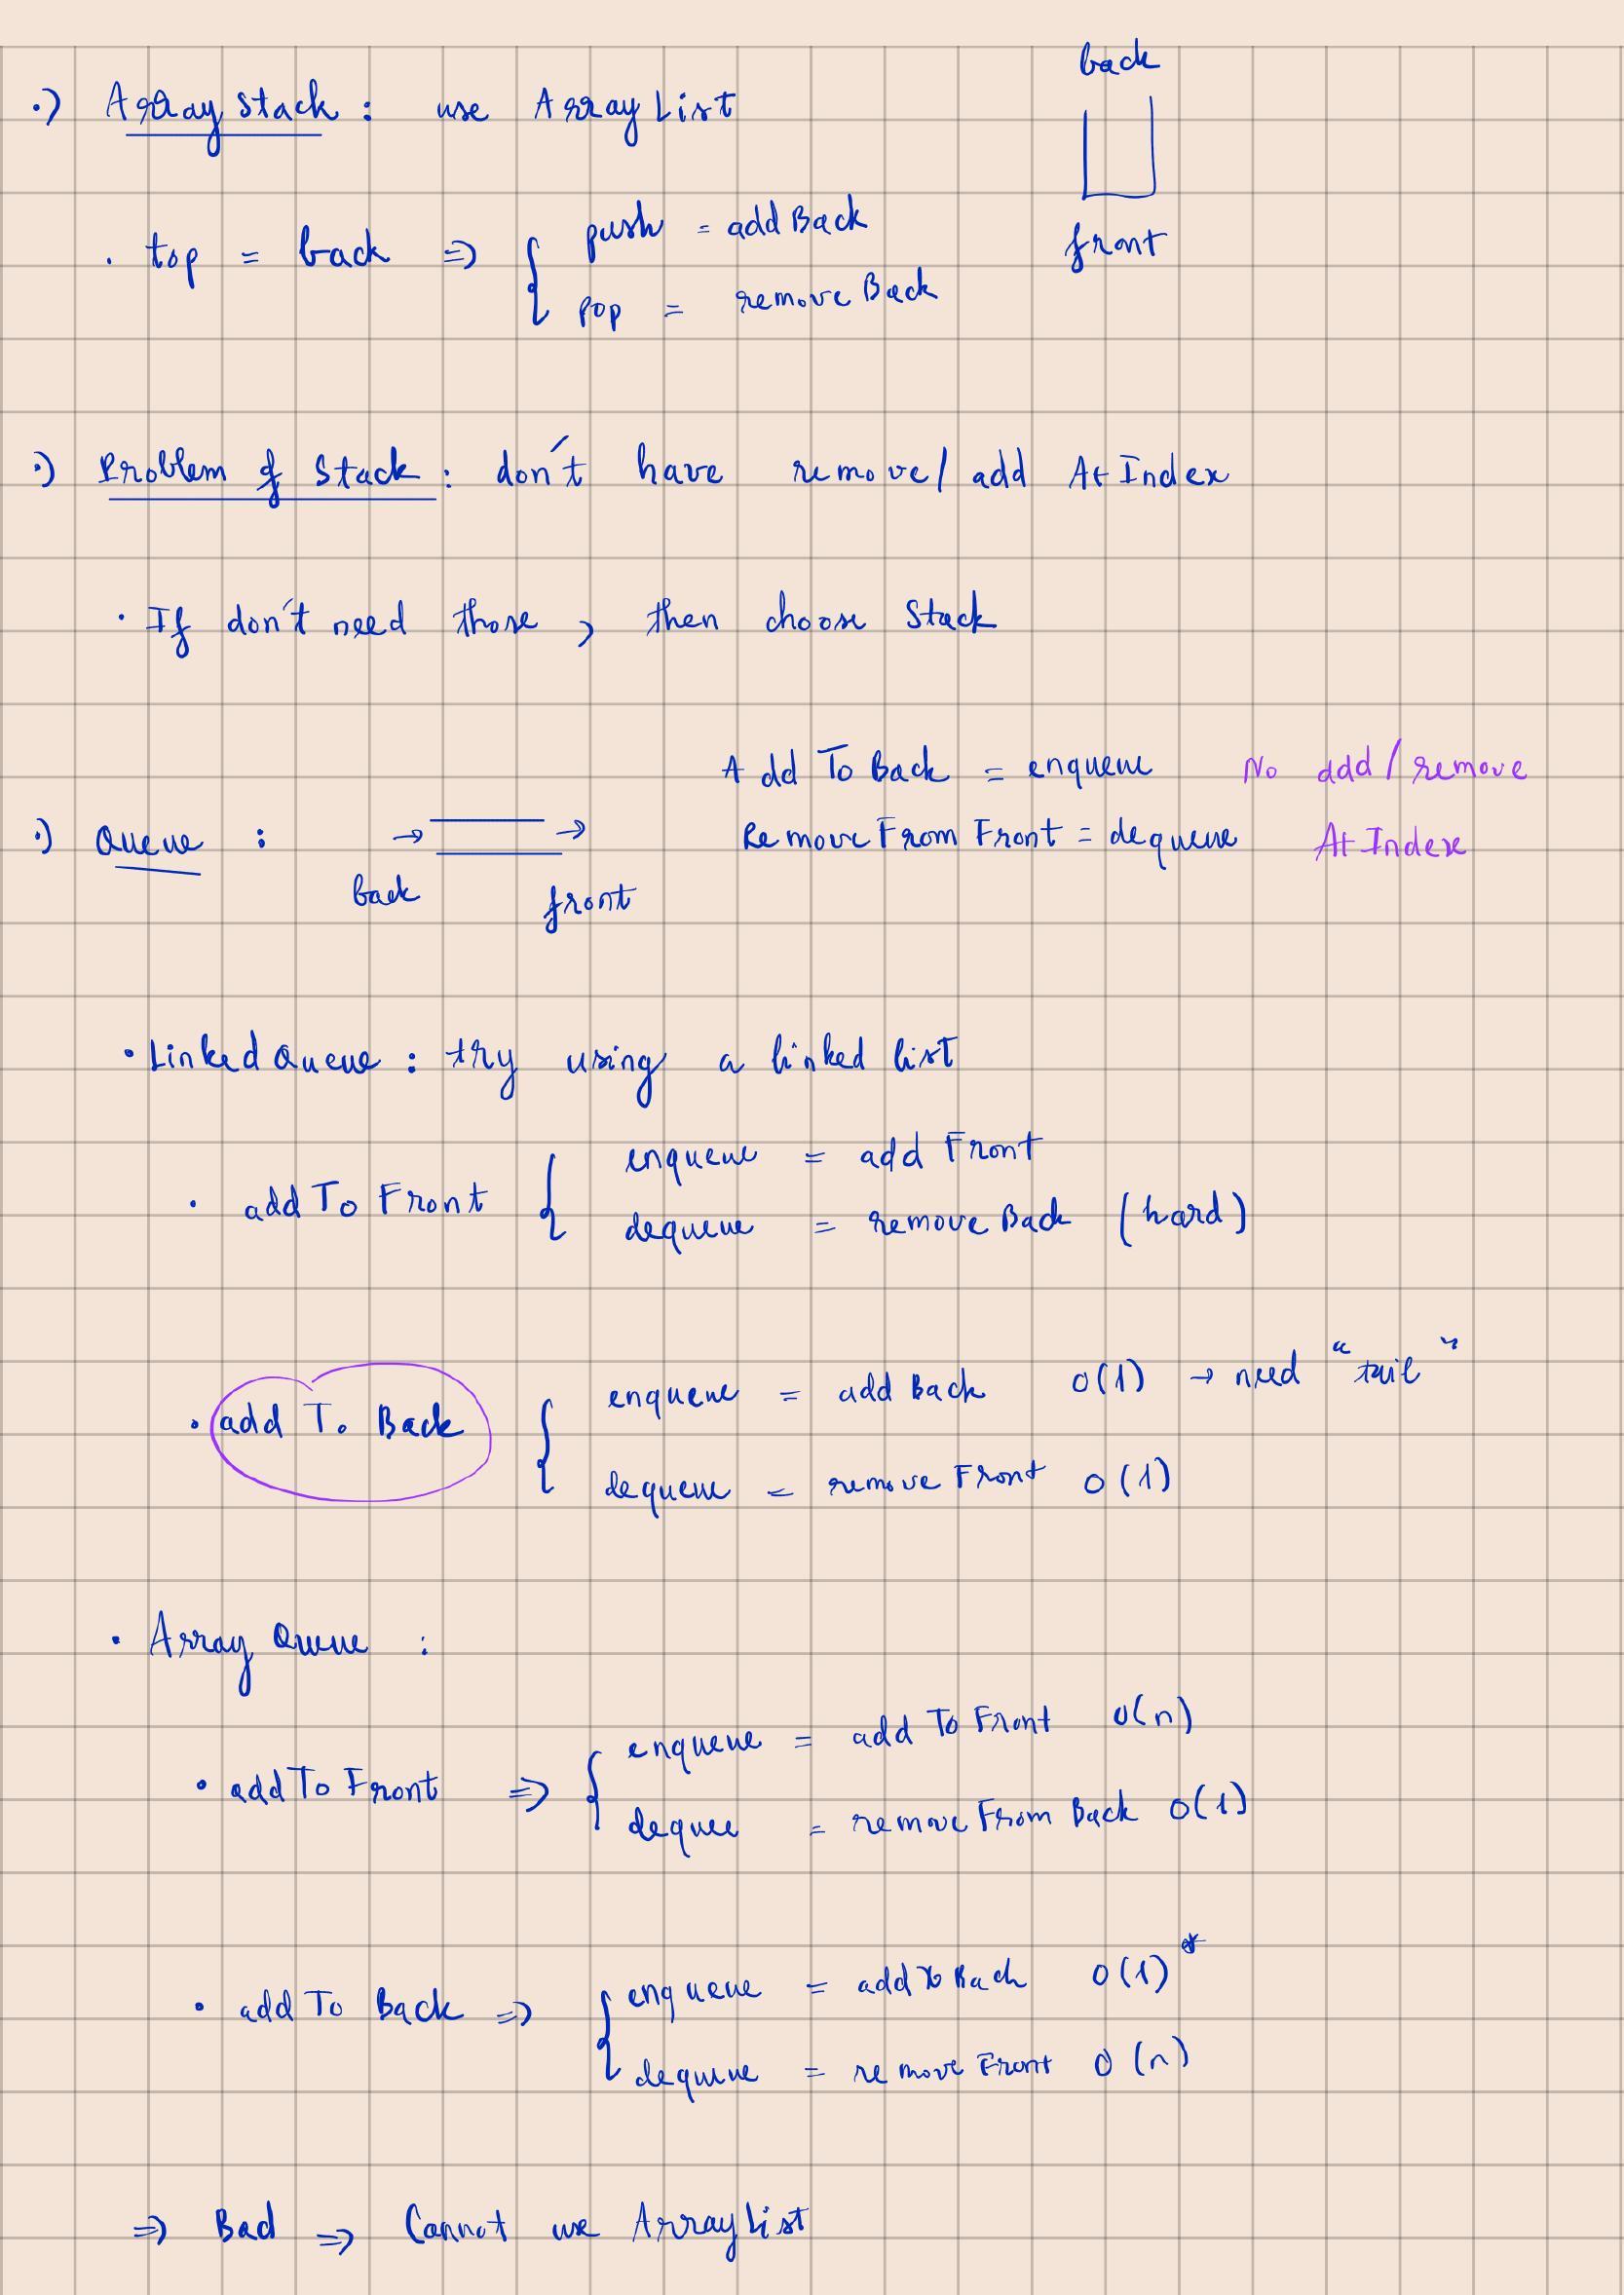 back
·) Array stack : use Array List
front
· top = back ⇒ { push = add Back
pop = remove Back
·) Problem of Stack : don't have remove / add At Index
· If don't need those , then choose Stack
Add To Back = enqueue No add / remove
·) Queue : → → Remove From Front = dequeue At Index
back front
· Linked Queue : try using a linked list
· add To Front { enqueue = add Front
dequeue = remove Back (hard)
· add To Back { enqueue = add Back O(1) → need "tail"
dequeue = remove Front O(1)
· Array Queue :
· add To Front ⇒ { enqueue = add To Front O(n)
dequee = remove From Back O(1)
· add To Back ⇒ { enqueue = add To Back O(1)*
dequeue = remove Front O(n)
⇒ Bad ⇒ Cannot use Array List